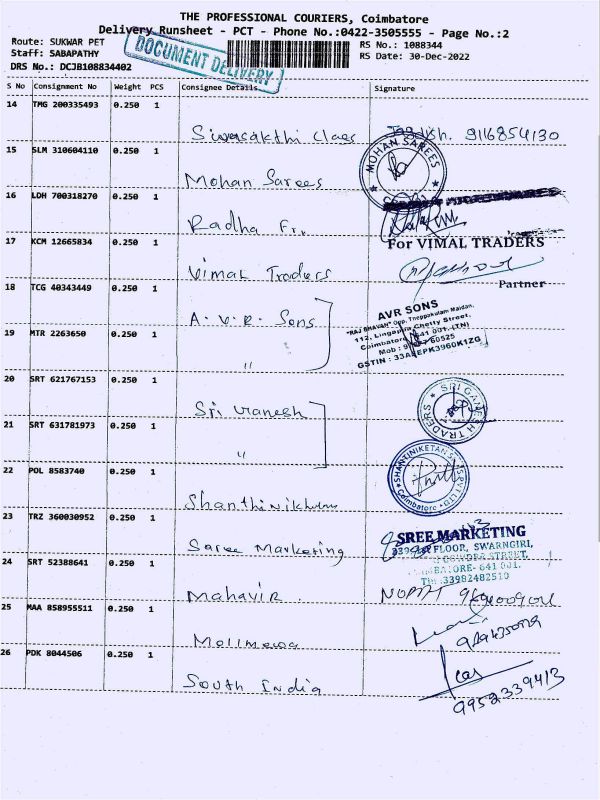 THE PROFESSIONAL COURIERS, Coimbatore
Delivery Runsheet - PCT - Phone No.:0422-3505555 - Page No.:2
Route: SUKWAR PET
RS No.: 1088344
Staff: SABAPATHY
RS Date: 30-Dec-2022
DRS No.: DCJB108834402
DOCUMENT DELIVERY
S No Consignment No Weight PCS Consignee Details Signature
14 TMG 200335493 0.250 1
Sivasakthi Class 9116854130
15 SLM 310604110 0.250 1
MOHAN SAREES
Mohan Sarees
16 LDH 700318270 0.250 1
Radha
17 KCM 12665834 0.250 1
For VIMAL TRADERS
Vimal Traders
Partner
18 TCG 40343449 0.250 1
A.V.R. Sons
AVR SONS
"RAJ BHAVAN" Opp. Theppakulam Maidan,
112, Lingappa Chetty Street,
Coimbatore 641 001. (TN)
Mob : 60525
GSTIN : 33A EPK3960K1ZG
19 MTR 2263650 0.250 1
"
20 SRT 621767153 0.250 1
Sri Ganesh
SRI GANESH TRADERS
21 SRT 631781973 0.250 1
"
22 POL 8583740 0.250 1
SHANTINIKETAN
Coimbatore
23 TRZ 360030952 0.250 1
SREE MARKETING
FLOOR, SWARNGIRI,
STREET,
641 001.
33982482510
Saree Marketing
24 SRT 52388641 0.250 1
Mahavir.
25 MAA 858955511 0.250 1
26 PDK 8044506 0.250 1
South India
9952339413